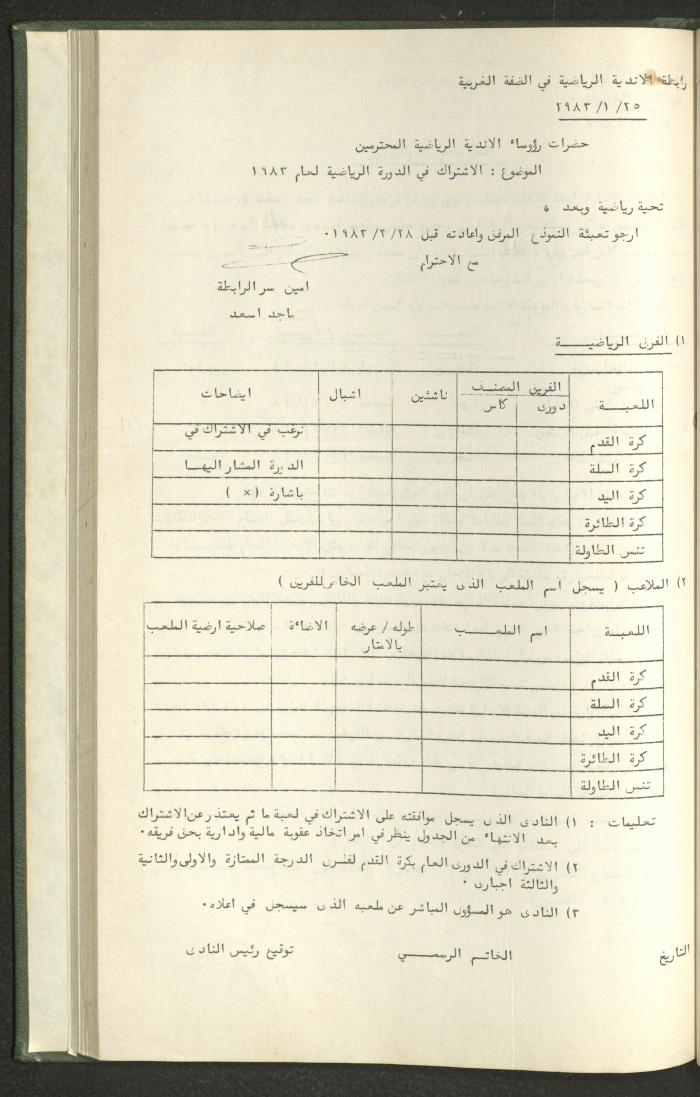 رابطة الاندية الرياضية في الضفة الغربية
٢٥/ ١/ ٢٩٨٣
حضرات رؤوساء الاندية الرياضية المحترمين
الموضوع : الاشتراك في الدورة الرياضية لعام ١٩٨٣
تحية رياضية وبعد ،
ارجو تعبئة النموذج المرفق واعادته قبل ٢٨/ ٢/ ١٩٨٣٠
مع الاحترام
امين سر الرابطة
ماجد اسعد
١) الفرق الرياضيـــــة
اللعبـــة الفريق المصنف ناشئين اشبال ايضاحات
دورى كاس
كرة القدم نرغب في الاشتراك في
كرة السلة الدورة المشار اليهـــا
كرة اليد باشارة ( × )
كرة الطائرة
تنس الطاولة
٢) الملاعب ( يسجل اسم الملعب الذى يعتبر الملعب الخاص للفريق )
اللعبـــة اسم الملعـــــب طوله / عرضه الاضاءة صلاحية ارضية الملعب
بالامتار
كرة القدم
كرة السلة
كرة اليد
كرة الطائرة
تنس الطاولة
تعليمات : ١) النادى الذى يسجل موافقته على الاشتراك في لعبة ما ثم يعتذر عن الاشتراك
بعد الانتهاء من الجدول ينظر في امر اتخاذ عقوبة مالية وادارية بحق فريقه٠
٢) الاشتراك في الدورى العام بكرة القدم لفرق الدرجة الممتازة والاولى والثانية
والثالثة اجبارى ٠
٣) النادى هو المسؤول المباشر عن ملعبه الذى سيسجل في اعلاه٠
التاريخ الخاتم الرسمـــــي توقيع رئيس النادى